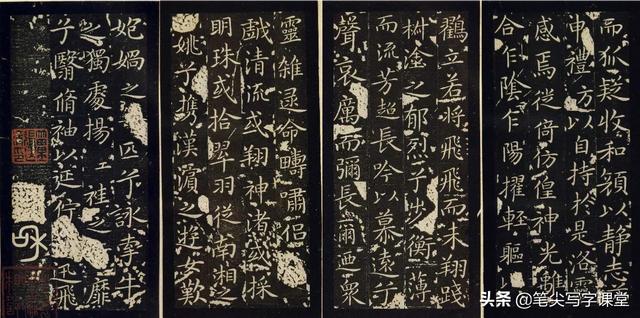 而狐疑收和顏以静志
申禮防以自持於是洛靈
感焉徙倚仿偟神光離
合乍陰乍陽擢輕軀以
立若將飛飛而未翔踐
椒塗之郁烈兮步衡薄
而流芳超長吟以慕遠兮
聲哀厲而彌長爾迺衆
靈雜遝命疇嘯侣
戲清流或翔神渚或採
明珠或拾翠羽從南湘之
姚兮攜漢濱之遊女歎
媧之匹兮詠牽牛
之獨處揚袿之靡
兮翳脩袖以延佇迅飛
头条 @笔尖写字课堂